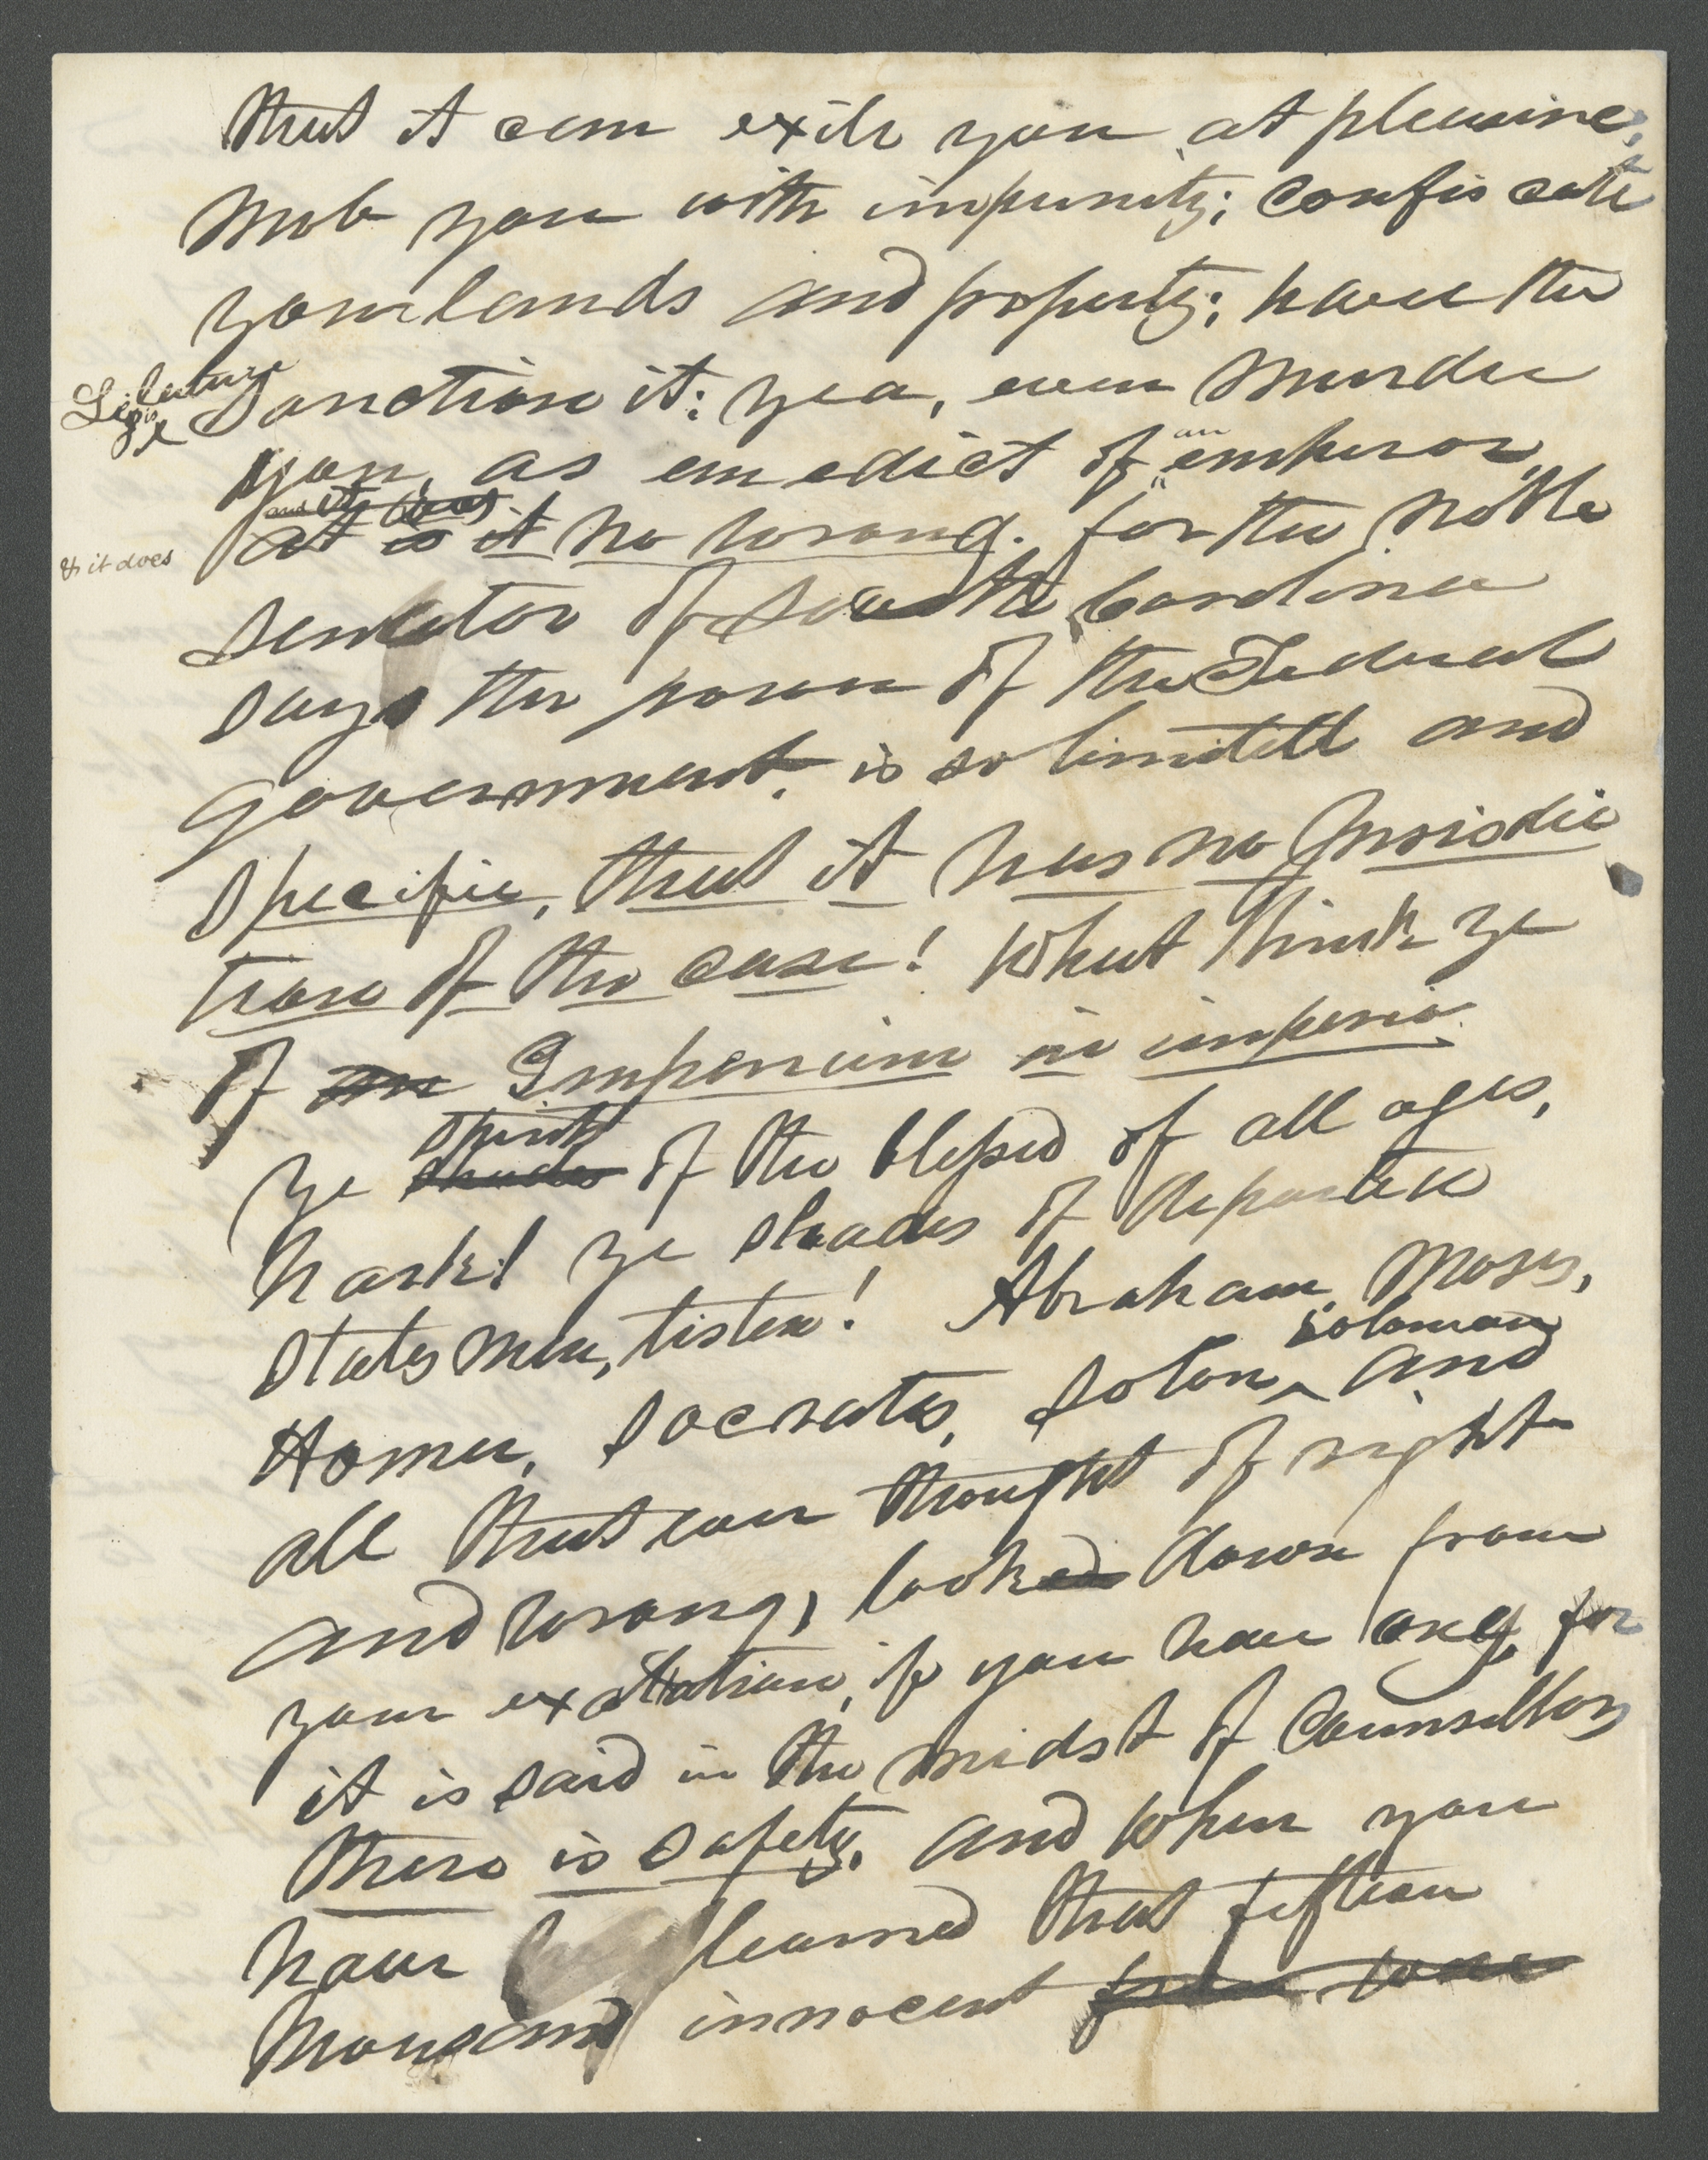 that it can exile you at pleasure;
mob you with impunity; confiscate
your lands and property; have the
Legislature
sanction it: yea, even murder
an
you, as an edict of emperor,
and it does
& it does
it no wrong. for the noble
senator of South Carolina
says the power of the Federal
government, is so limited and
specific, that it has no Jurisdic
tion of the case! What think ye
of an Imperium in imperio.
spirits
ye shades of the blessed of all ages,
hark! ye shades of departed
statesmen, listen! Abraham, Moses,
Soloman
Homer, Socrates, Solon and
all that ever thought of right
and wrong, looked down from
your exaltation, if you have any, for
it is said in the midst of counsellors
there is safety, and when you
have learned that fifteen
thousand innocent